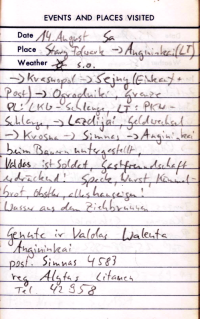 EVENTS AND PLACES VISITED
Date 14. August Sa
Place Stary Folwark → Angininkai (LT)
Weather s.o.
→ Krasnopol → Sejny (Einkauf +
Post) → Ogrodniki, Grenze
PL: LKW-Schlange, LT: PKW-
Schlange, → Lazdijai, Geldwechsel
→ Krosna → Simnas → Angininkai
beim Bauern untergestellt,
Valdas ist Soldat, Gastfreundschaft
erdrückend! Speck, Wurst, Kümmel-
brot, Obstler, alles hineigen!
Wasser aus dem Ziehbrunnen
Genutė ir Valdas Valenta
Angininkai
pašt. Simnas 4583
reg Alytus Litauen
Tel 42958